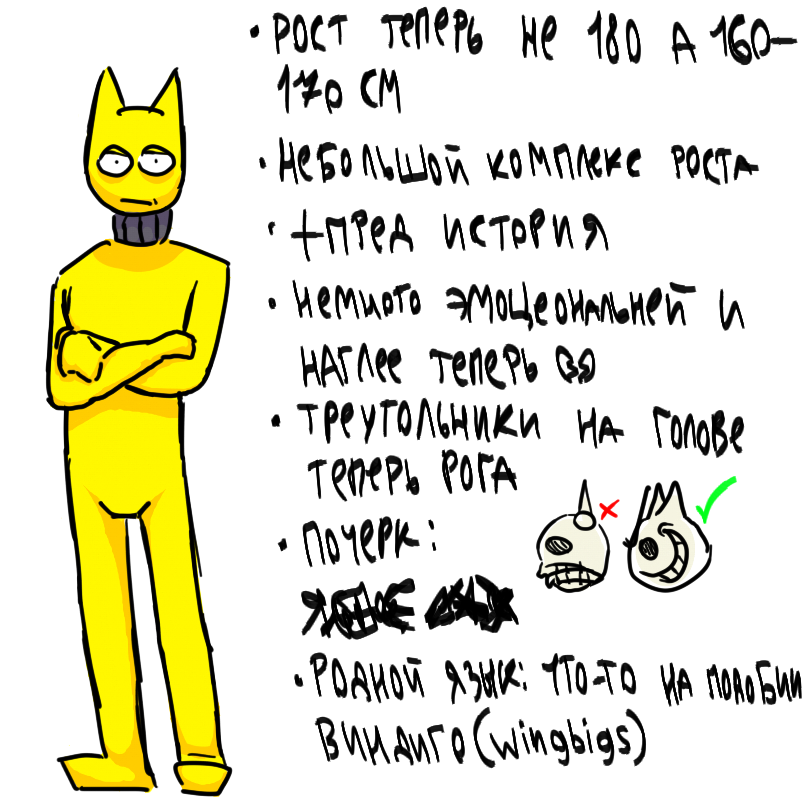 • РОСТ ТЕПЕРЬ НЕ 180 А 160-
170 СМ
• НЕБОЛЬШОЙ КОМПЛЕКС РОСТА
• +ПРЕД ИСТОРИЯ
• НЕМНОГО ЭМОЦЕОНАЛЬНЕЙ И
НАГЛЕЕ ТЕПЕРЬ
• ТРЕУГОЛЬНИКИ НА ГОЛОВЕ
ТЕПЕРЬ РОГА
• ПОЧЕРК:
• РОДНОЙ ЯЗЫК: ЧТО-ТО НА ПОДОБИИ
ВИНДИГО (wingbigs)